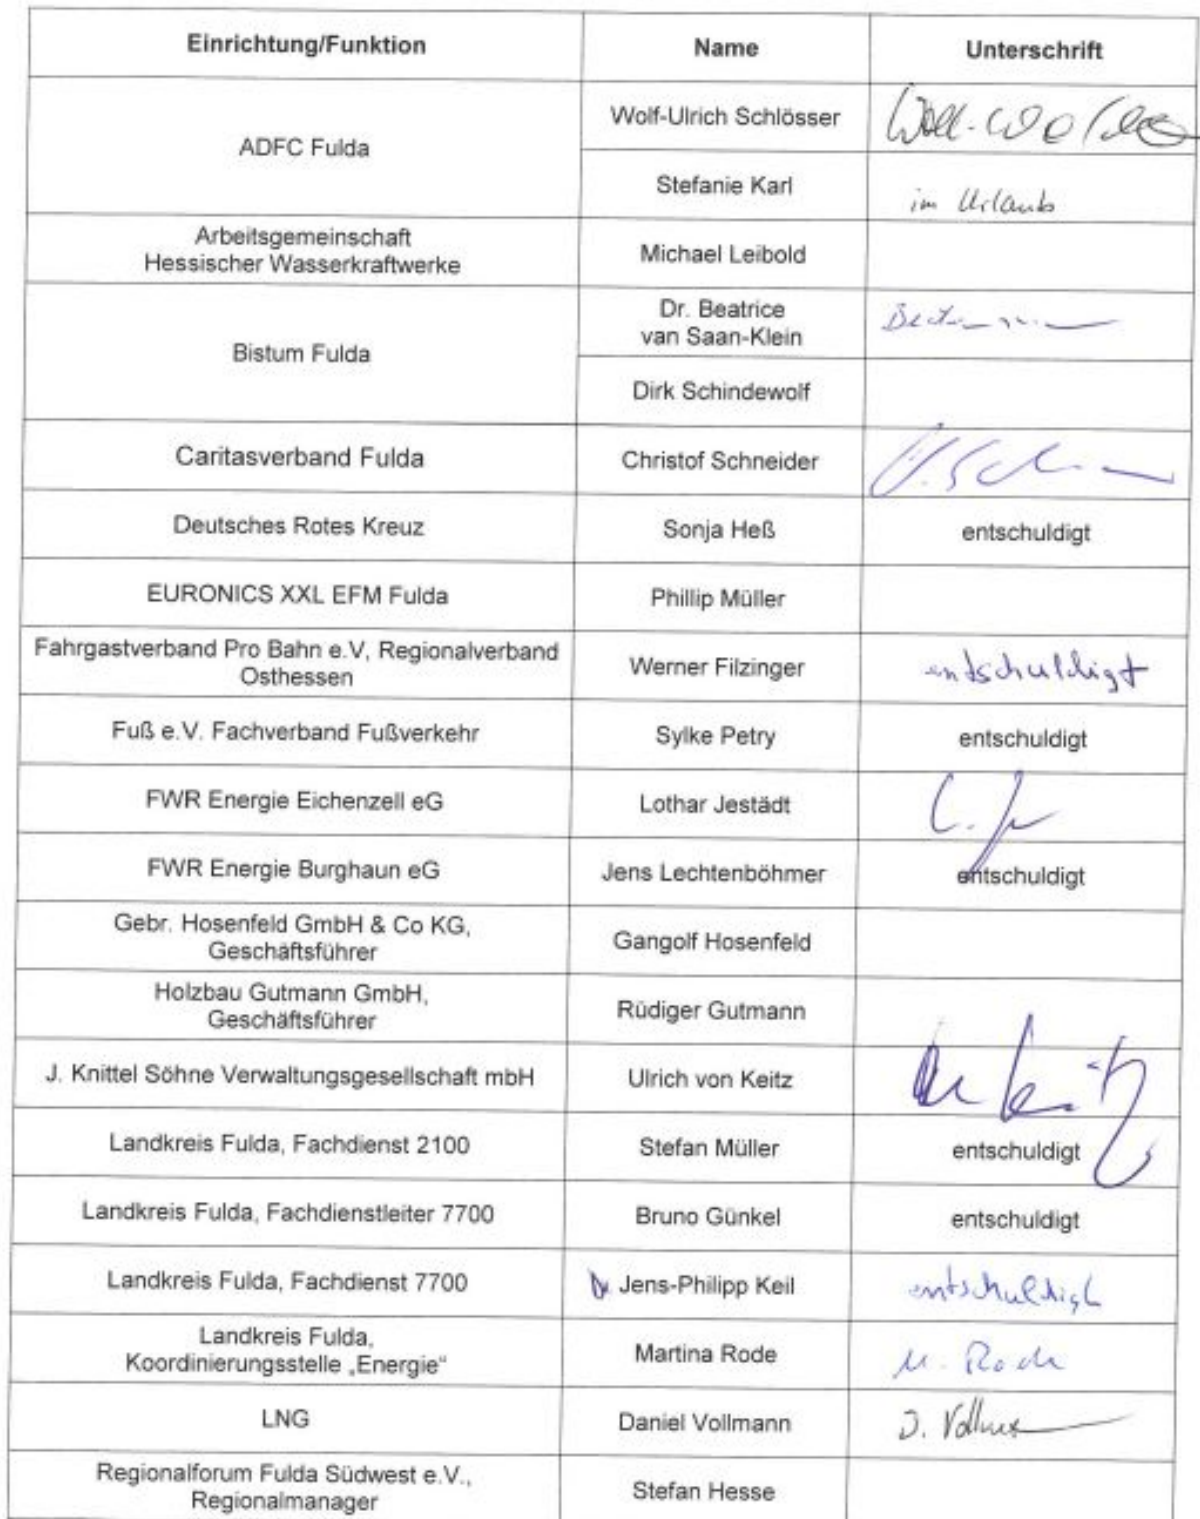 Einrichtung/Funktion Name Unterschrift
ADFC Fulda
Wolf-Ulrich Schlösser
Stefanie Karl im Urlaub
Arbeitsgemeinschaft
Hessischer Wasserkraftwerke
Michael Leibold
Bistum Fulda
Dr. Beatrice
van Saan-Klein
Dirk Schindewolf
Caritasverband Fulda Christof Schneider
Deutsches Rotes Kreuz Sonja Heß entschuldigt
EURONICS XXL EFM Fulda Phillip Müller
Fahrgastverband Pro Bahn e.V, Regionalverband
Osthessen
Werner Filzinger entschuldigt
Fuß e.V. Fachverband Fußverkehr Sylke Petry entschuldigt
FWR Energie Eichenzell eG Lothar Jestädt
FWR Energie Burghaun eG Jens Lechtenböhmer entschuldigt
Gebr. Hosenfeld GmbH & Co KG,
Geschäftsführer
Gangolf Hosenfeld
Holzbau Gutmann GmbH,
Geschäftsführer
Rüdiger Gutmann
J. Knittel Söhne Verwaltungsgesellschaft mbH Ulrich von Keitz
Landkreis Fulda, Fachdienst 2100 Stefan Müller entschuldigt
Landkreis Fulda, Fachdienstleiter 7700 Bruno Günkel entschuldigt
Landkreis Fulda, Fachdienst 7700 Jens-Philipp Keil entschuldigt
Landkreis Fulda,
Koordinierungsstelle „Energie“
Martina Rode M. Rode
LNG Daniel Vollmann
Regionalforum Fulda Südwest e.V.,
Regionalmanager
Stefan Hesse